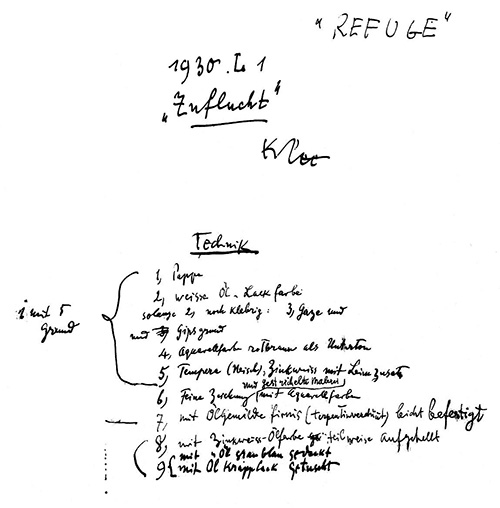 "REFUGE"
1930. L 1
„Zuflucht"
Klee
Technik
1, Pappe
2, weisse Öl-Lackfarbe
solange 2, noch klebrig: 3, Gaze und
und Gipsgrund
4, Aquarellfarb rotbraun als Unterton
1 mit 5
Grund
5, Tempera (Neisch), Zinkweiss mit Leimzusatz
und
6, Feine Zeichnung mit Aquarellfarbe
7, mit Ölgemälde firnis (terpentinverdünnt) leicht befestigt
8, mit Zinkweiss-Ölfarbe teilweise aufgehellt
9 { mit Öl graublau gedeckt
mit Öl Krapplack getuscht